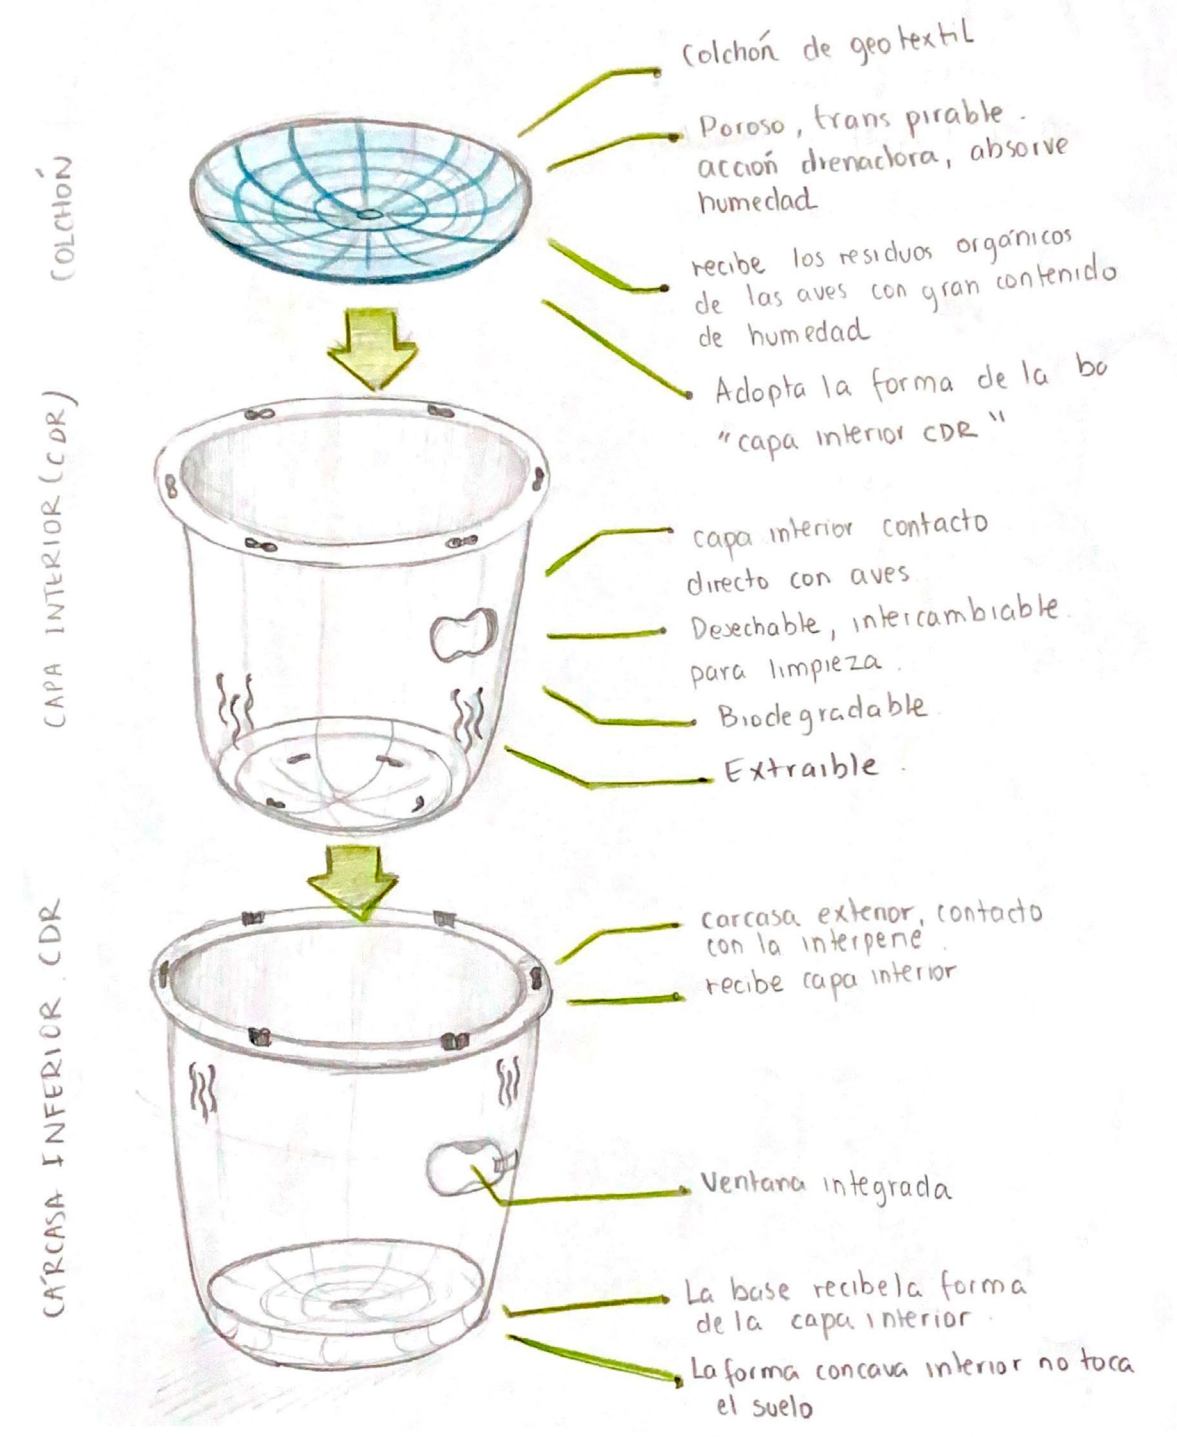 COLCHÓN
Colchón de geotextil
Poroso, transpirable.
acción drenadora, absorve
humedad
recibe los residuos orgánicos
de las aves con gran contenido
de humedad
Adopta la forma de la ba
"capa interior CDR"
CAPA INTERIOR (CDR)
capa interior contacto
directo con aves
Desechable, intercambiable.
para limpieza.
Biodegradable.
Extraible.
CÁRCASA INFERIOR. CDR
carcasa exterior, contacto
con la interperie.
recibe capa interior
Ventana integrada
La base recibe la forma
de la capa interior.
La forma concava interior no toca
el suelo